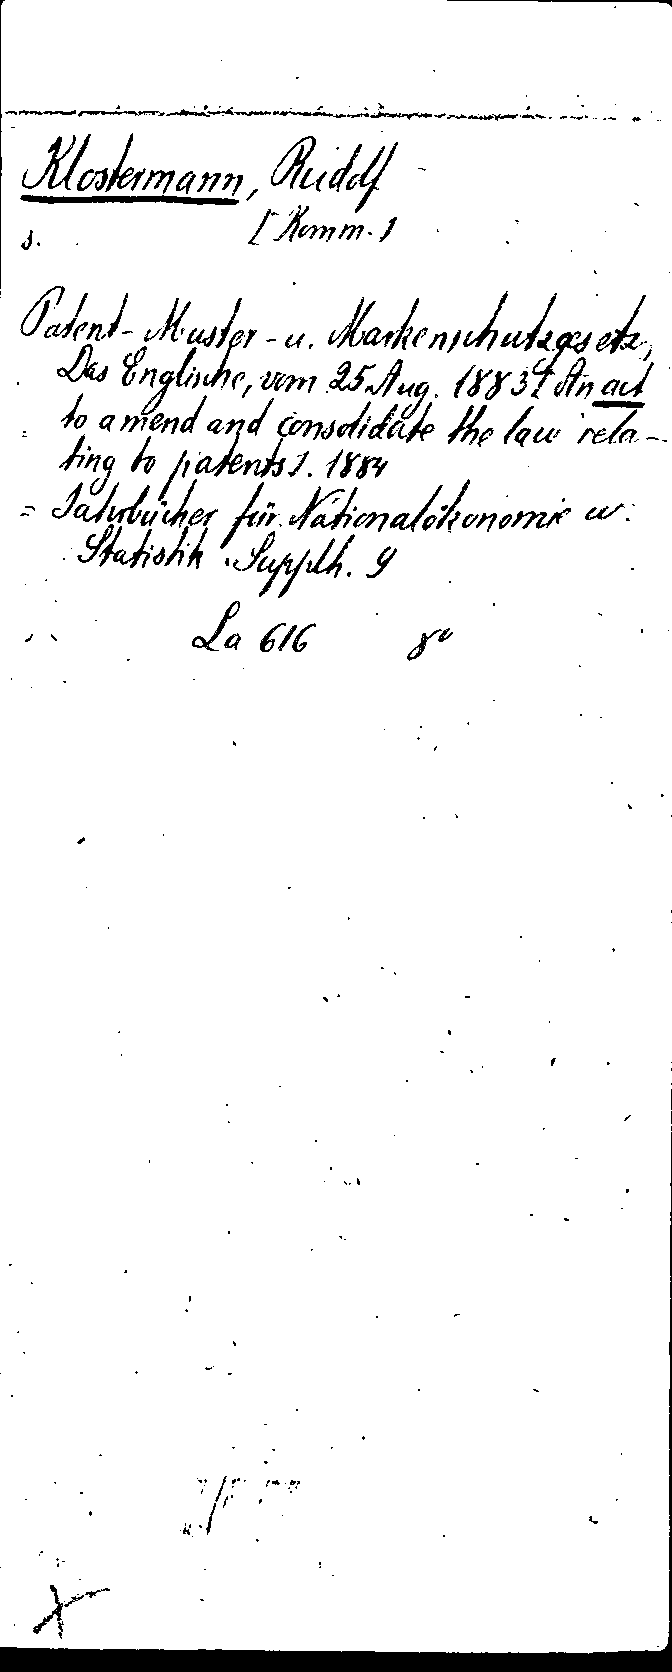 Klostermann, Rudolf
s. [Komm.]
Patent- Muster- u. Markenschutzgesetz,
Das Englische, vom 25. Aug. 1883 [An act
to amend and consolidate the law rela-
ting to patents]. 1884
= Jahrbücher für Nationalökonomie u.
Statistik. Supplh. 9
La 616 8°